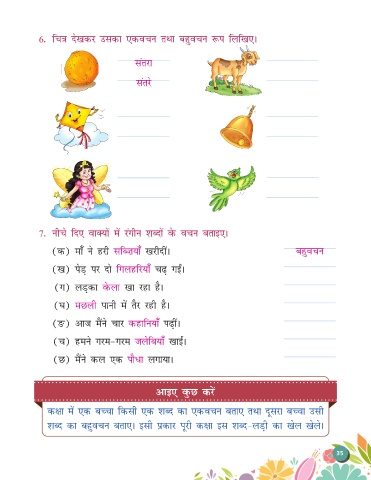 6. चित्र देखकर उसका एकवचन तथा बहुवचन रूप लिखिए।
संतरा
संतरे
7. नीचे दिए वाक्यों में रंगीन शब्दों के वचन बताइए।
(क) माँ ने हरी सब्ज़ियाँ खरीदीं। बहुवचन
(ख) पेड़ पर दो गिलहरियाँ चढ़ गईं।
(ग) लड़का केला खा रहा है।
(घ) मछली पानी में तैर रही है।
(ङ) आज मैंने चार कहानियाँ पढ़ीं।
(च) हमने गरम-गरम जलेबियाँ खाईं।
(छ) मैंने कल एक पौधा लगाया।
आइए कुछ करें
कक्षा में एक बच्चा किसी एक शब्द का एकवचन बताए तथा दूसरा बच्चा उसी
शब्द का बहुवचन बताए। इसी प्रकार पूरी कक्षा इस शब्द-लड़ी का खेल खेले।
35